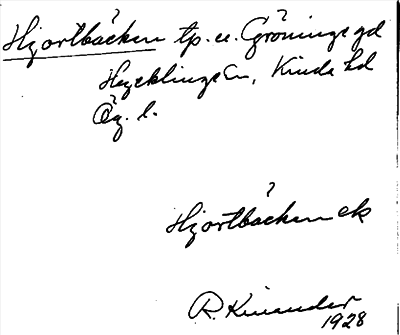 Hjortbäcken tp. u. Grönings gd
Hycklinge sn, Kinda hd
Ög. l.
Hjortbäcken ck
R. Kinander
1928